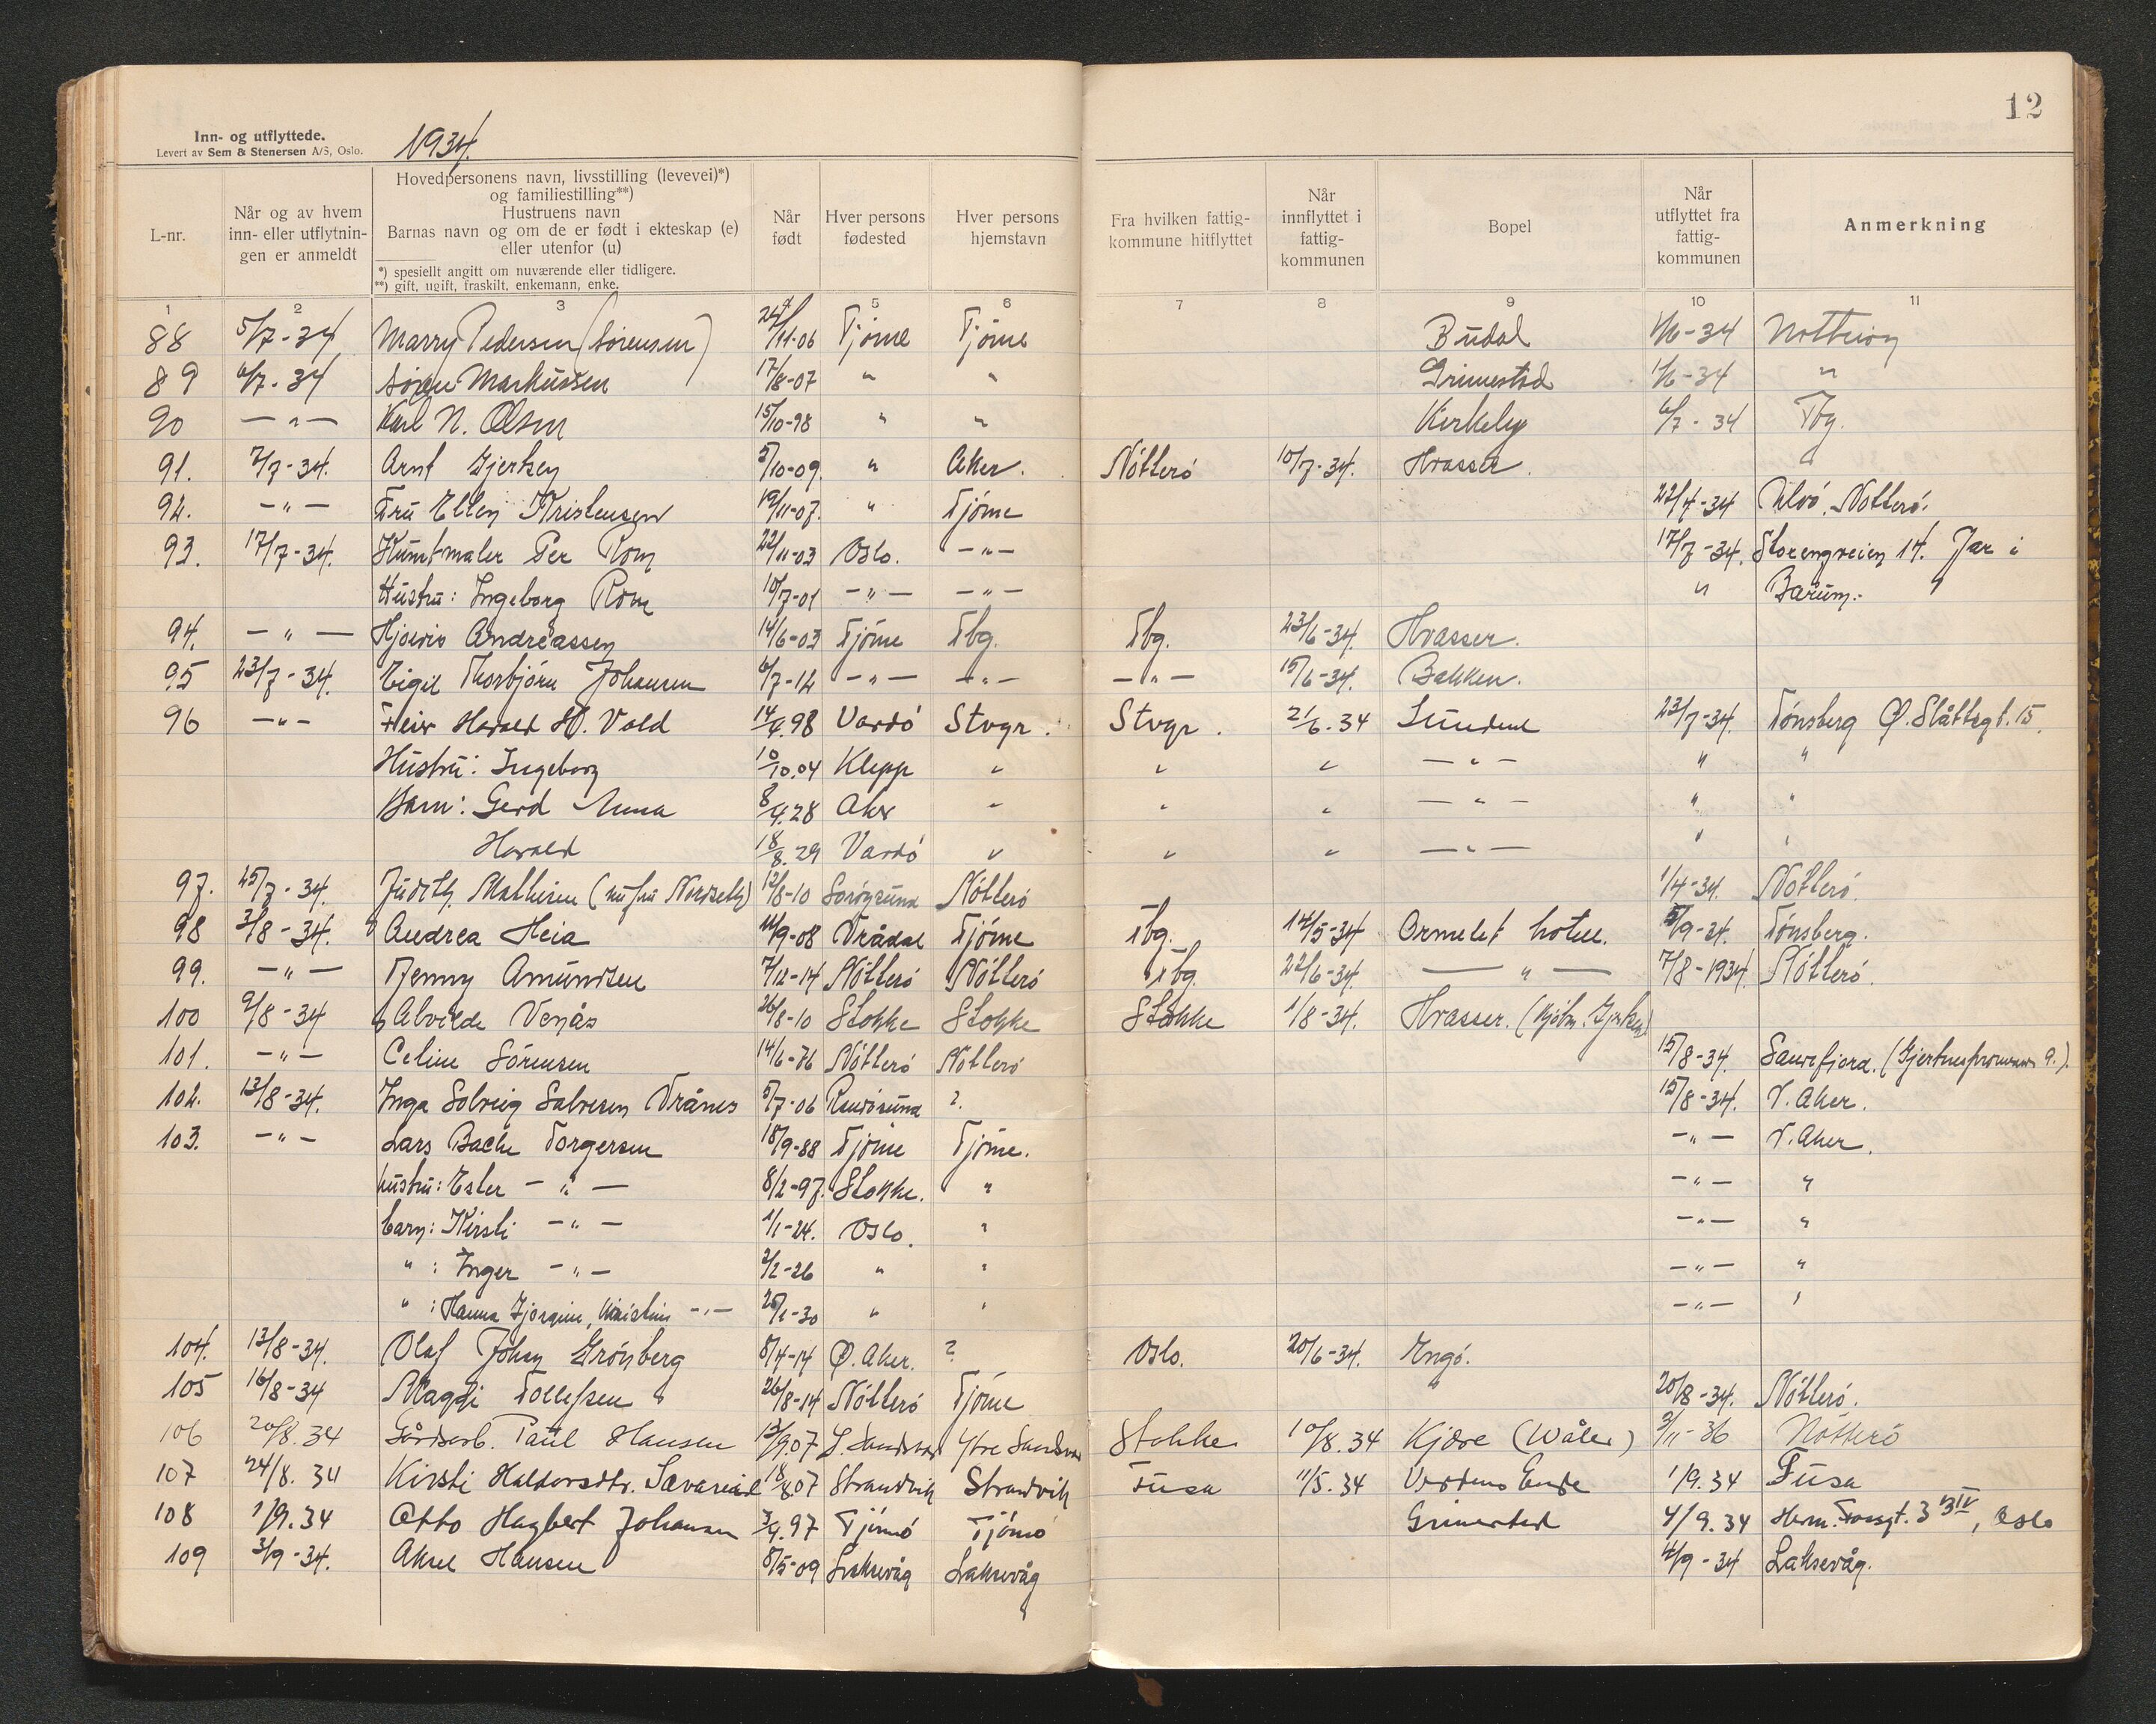 12
Inn- og utflyttede.
Levert av Sem & Stenersen A/S, Oslo.
1934.
L-nr.
Når og av hvem inn- eller utflytnin-gen er anmeldt
Hovedpersonens navn, livsstilling (levevei)*)
og familiestilling**)
Hustruens navn
Barnas navn og om de er født i ekteskap (e)
eller utenfor (u)
*) spesiellt angitt om nuværende eller tidligere.
**) gift, ugift, fraskilt, enkemann, enke.
Når født
Hver persons fødested
Hver persons hjemstavn
Fra hvilken fattig-kommune hitflyttet
Når innflyttet i fattig-kommunen
Bopel
Når utflyttet fra fattig-kommunen
Anmerkning
1 2 3 5 6 7 8 9 10 11
88 5/7-34 Marry Pedersen (Sørensen) 24/11-06 Tjöme Tjöme Budal 1/6-34
89 6/7-34 Markussen 17/8-07 " " Grimestad 1/6-34 "
90 — " — Karl N. Olsen 15/10-98 " " Kirkeby 6/7-34 Tbg.
91. 7/7-34. Arnt Gjertsen 5/10-09. " Aker. Nötterö 10/7-34. Hvasser.
92. — " — Fru Ellen Kristensen 19/11-07. " Tjöme 22/7-34 Ulvö, Nötterö.
93. 17/7-34. Kunstmaler Per Rom 22/11-03 Oslo. — " — 17/7-34. Storengveien 17. Jar i
Hustru: Ingeborg Rom 10/7-01 — " — — " — " Bærum.
94. — " — Hjørdis Andreassen 14/6-03 Tjöme Tbg. Tbg. 23/6-34. Hvasser.
95 23/7-34. Eigil Thorbjörn Johansen 6/7-12 — " — — " — — " — 15/6-34. Bakken.
96 — " — Harald H. Vold 14/4.98 Vardö Stvgr. Stvgr. 21/6.34 Sundene 23/7-34. Tönsberg Ø. Slåttsgt. 15.
Hustru: Ingeborg 10/10.04 Klepp " " " — " — " "
Barn: Gerd Anna 8/4.28 Aker " " " — " — " "
Harald 18/8.29 Vardö " " " — " — " "
97. 25/7-34. Judith Mathisen (nu fru Nordseth) 12/8-10 Sørøysund Nötterö 1/4-34. Nötterö.
98 3/8-34. Andrea Heia 11/9-08 Drådal Tjöme Tbg. 14/5-34 Ormelet hotell. 5/9-34. Tönsberg.
99. — " — Jenny Amundsen 7/12-14 Nötterö Nötterö Tbg. 22/6-34. — " — 7/8-1934. Nötterö.
100 9/8-34 Alvilde Venås 26/8-10 Stokke Stokke Stokke 1/8-34. Hvasser. (Kjöbm. Gjertsen)
101. — " — Celine Sörensen 14/6-76 Nötterö Nötterö 15/8-34. Sandefjord.
102. 13/8-34. Inga Solveig Salvesen Vrånes 5/7-06 Randösund ?. 15/8-34. V. Aker.
103. — " — Lars Bache Torgersen 18/9-88 Tjöme Tjöme. — " — V. Aker.
hustru: Ester — " — 8/2-97. Stokke. " — " — "
barn: Kirsti — " — 1/1-24. Oslo. " — " — "
" : Inger — " — 2/2-26 " " — " — "
" : Hanna Kristin — " — 25/1-30 " " — " — "
104. 13/8-34. Olaf Johan Grönberg 8/4-14 Ø. Aker. ? Oslo. 20/6-34. Engö.
105 16/8-34 Magdi Tollefsen 26/8-14 Nötterö Tjöme " 20/8-34. Nötterö.
106 20/8.34 Gårdsarb. Paul Hansen 13/9.07 Y. Sandsvær Ytre Sandsvær Stokke 10/8.34 Kjære (Wåler) 9/11-36 Nötterö
107 24/8.34 Kirsti Haldorsdtr. Sævareid 18/8.07 Strandvik Strandvik Fusa 11/5.34 Verdens Ende 1/9.34 Fusa
108 1/9.34 Otto Hagbert Johansen 3/4.97 Tjömö Tjömö Grimestad 4/9.34 Herm. Fossgt. 3 IV, Oslo
109 3/9-34. Aksel Hansen 8/5-09 Laksevåg Laksevåg 4/9-34 Laksevåg.